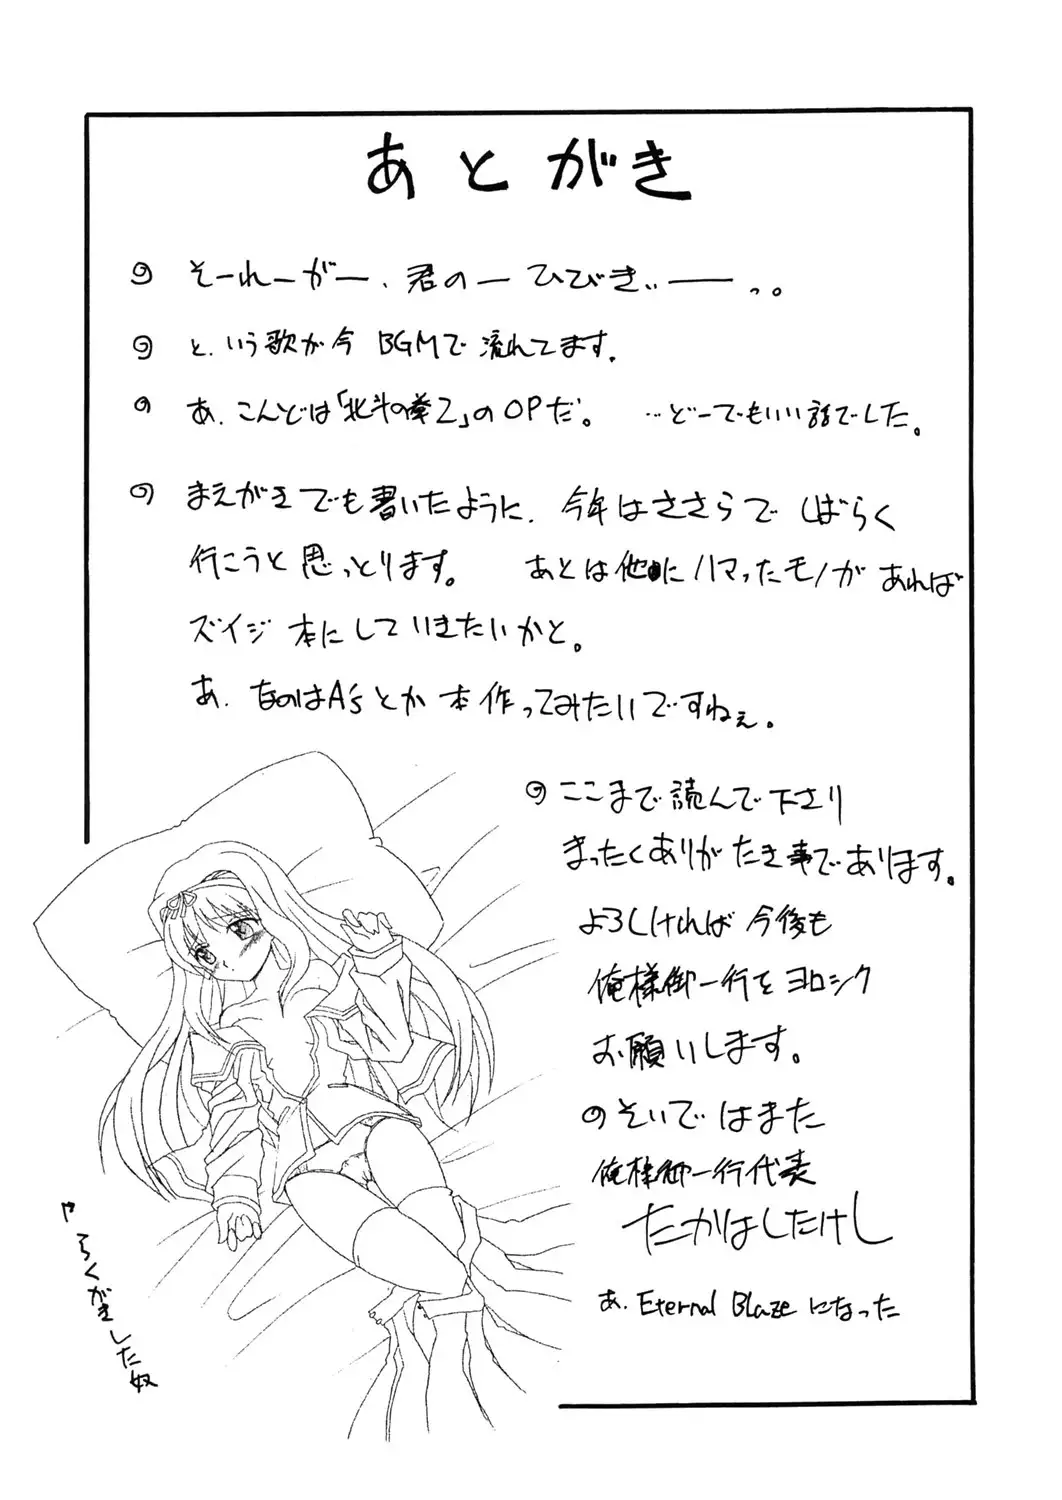 あとがき
そーれーがー、君のーひびきぃーーっ。
と、いう歌が今BGMで流れてます。
あ、こんどは「北斗の拳2」のOPだ。 …どーでもいい話でした。
まえがきでも書いたように、今年はささらでしばらく
行こうと思っとります。 あとは他にハマったモノがあれば
ズイジ本にしていきたいかと。
あ、なのはA'sとか本作ってみたいですねぇ。
ここまで読んで下さり
まったくありがたき事であります。
よろしければ今後も
俺様御一行をヨロシク
お願いします。
そいではまた
俺様御一行代表
たかはしたけし
あ、Eternal Blazeになった
らくがきした奴